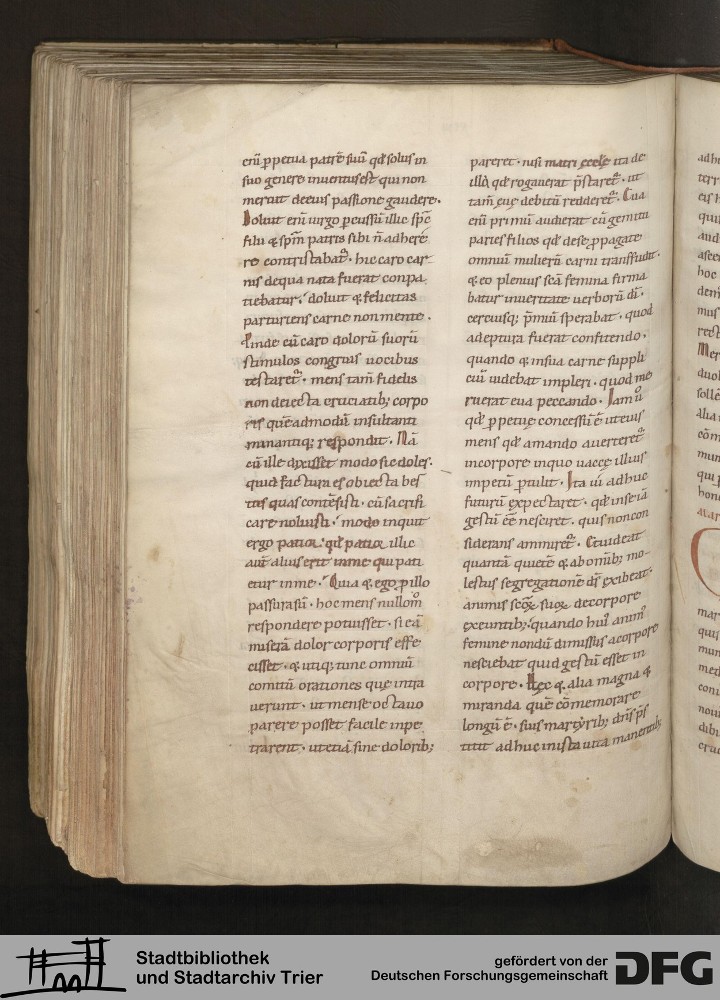 eni ꝑpetua patrē suū qđ solus in
suo genere inuentus est qui non
meruit de eius passione gaudere.
Doluit eni uirgo ꝑcussū illic spc
filii & spm patris sibi ñ adhere
re contristabat᷒. hic caro car
nis de qua nata fuerat conpa
tiebatur. doluit & felicitas
parturiens carne non mente.
Proinde cū caro dolorū suorū
stimulos congruis uocibus
testaret᷒. mens tam fidelis
non deiecta cruciatib; corpo
ris quēadmodū insultanti
minantiq; respondit. Nā
cū ille dixisset modo sic doles.
quid factura es obiecta bes
tiis quas contēsisti. cū sacrifi
care noluisti. modo inquit
ergo patior qđ patior illic
aut alius erit in me qui pati
etur in me. Quia & ego ꝓ illo
passura sū. hoc mens nullom̊
respondere potuisset. si eā
miserā dolor corporis effe
cisset. & utiq; tunc omniū
comitū orationes que intra
uerunt. ut mense octauo
parere posset facile inpe
trarent. ut etiā sine dolorib;
pareret. nisi matri ęcclę ita de
illa qđ rogauerat p̄staret᷒. ut
tam ęuę debitū redderet᷒. Qua
eni primū audierat cū gemitu
paries filios qđ de se ꝓpagate
omniū mulierū carni transfudit.
& eo plenius scā femina firma
batur in ueritate uerborū di.
cercuisq; p̄miū sperabat. quod
adeptura fuerat confitendo.
quando & in sua carne suppli
ciū uidebat impleri. quod me
ruerat eua peccando. Iam ů
qđ ꝑpetuę concessū ē ut eius
mens qđ amando auerteret᷒
in corpore in quo uacce illius
impetū ꝑtulit. Ita ui adhuc
futurū expectaret. qđ in se iā
gestū eē nesciret. quis non con
siderans ammiret᷒. Et uideat
quantā quietē & ab omib; mo-
lestiis segregationē ds exibeat.
animis scoꝝ suoꝝ de corpore
exeuntib; quando hui᷒ anim᷒
femine nondū dimissus a corpore
nesciebat quid gestū esset in
corpore. Hęc & alia magna &
miranda que cōmemorare
longū ē. suis martyrib; dns pͥs
titit adhuc in ista uita manentib;
Stadtbibliothek
und Stadtarchiv Trier
gefördert von der
Deutschen Forschungsgemeinschaft
DFG